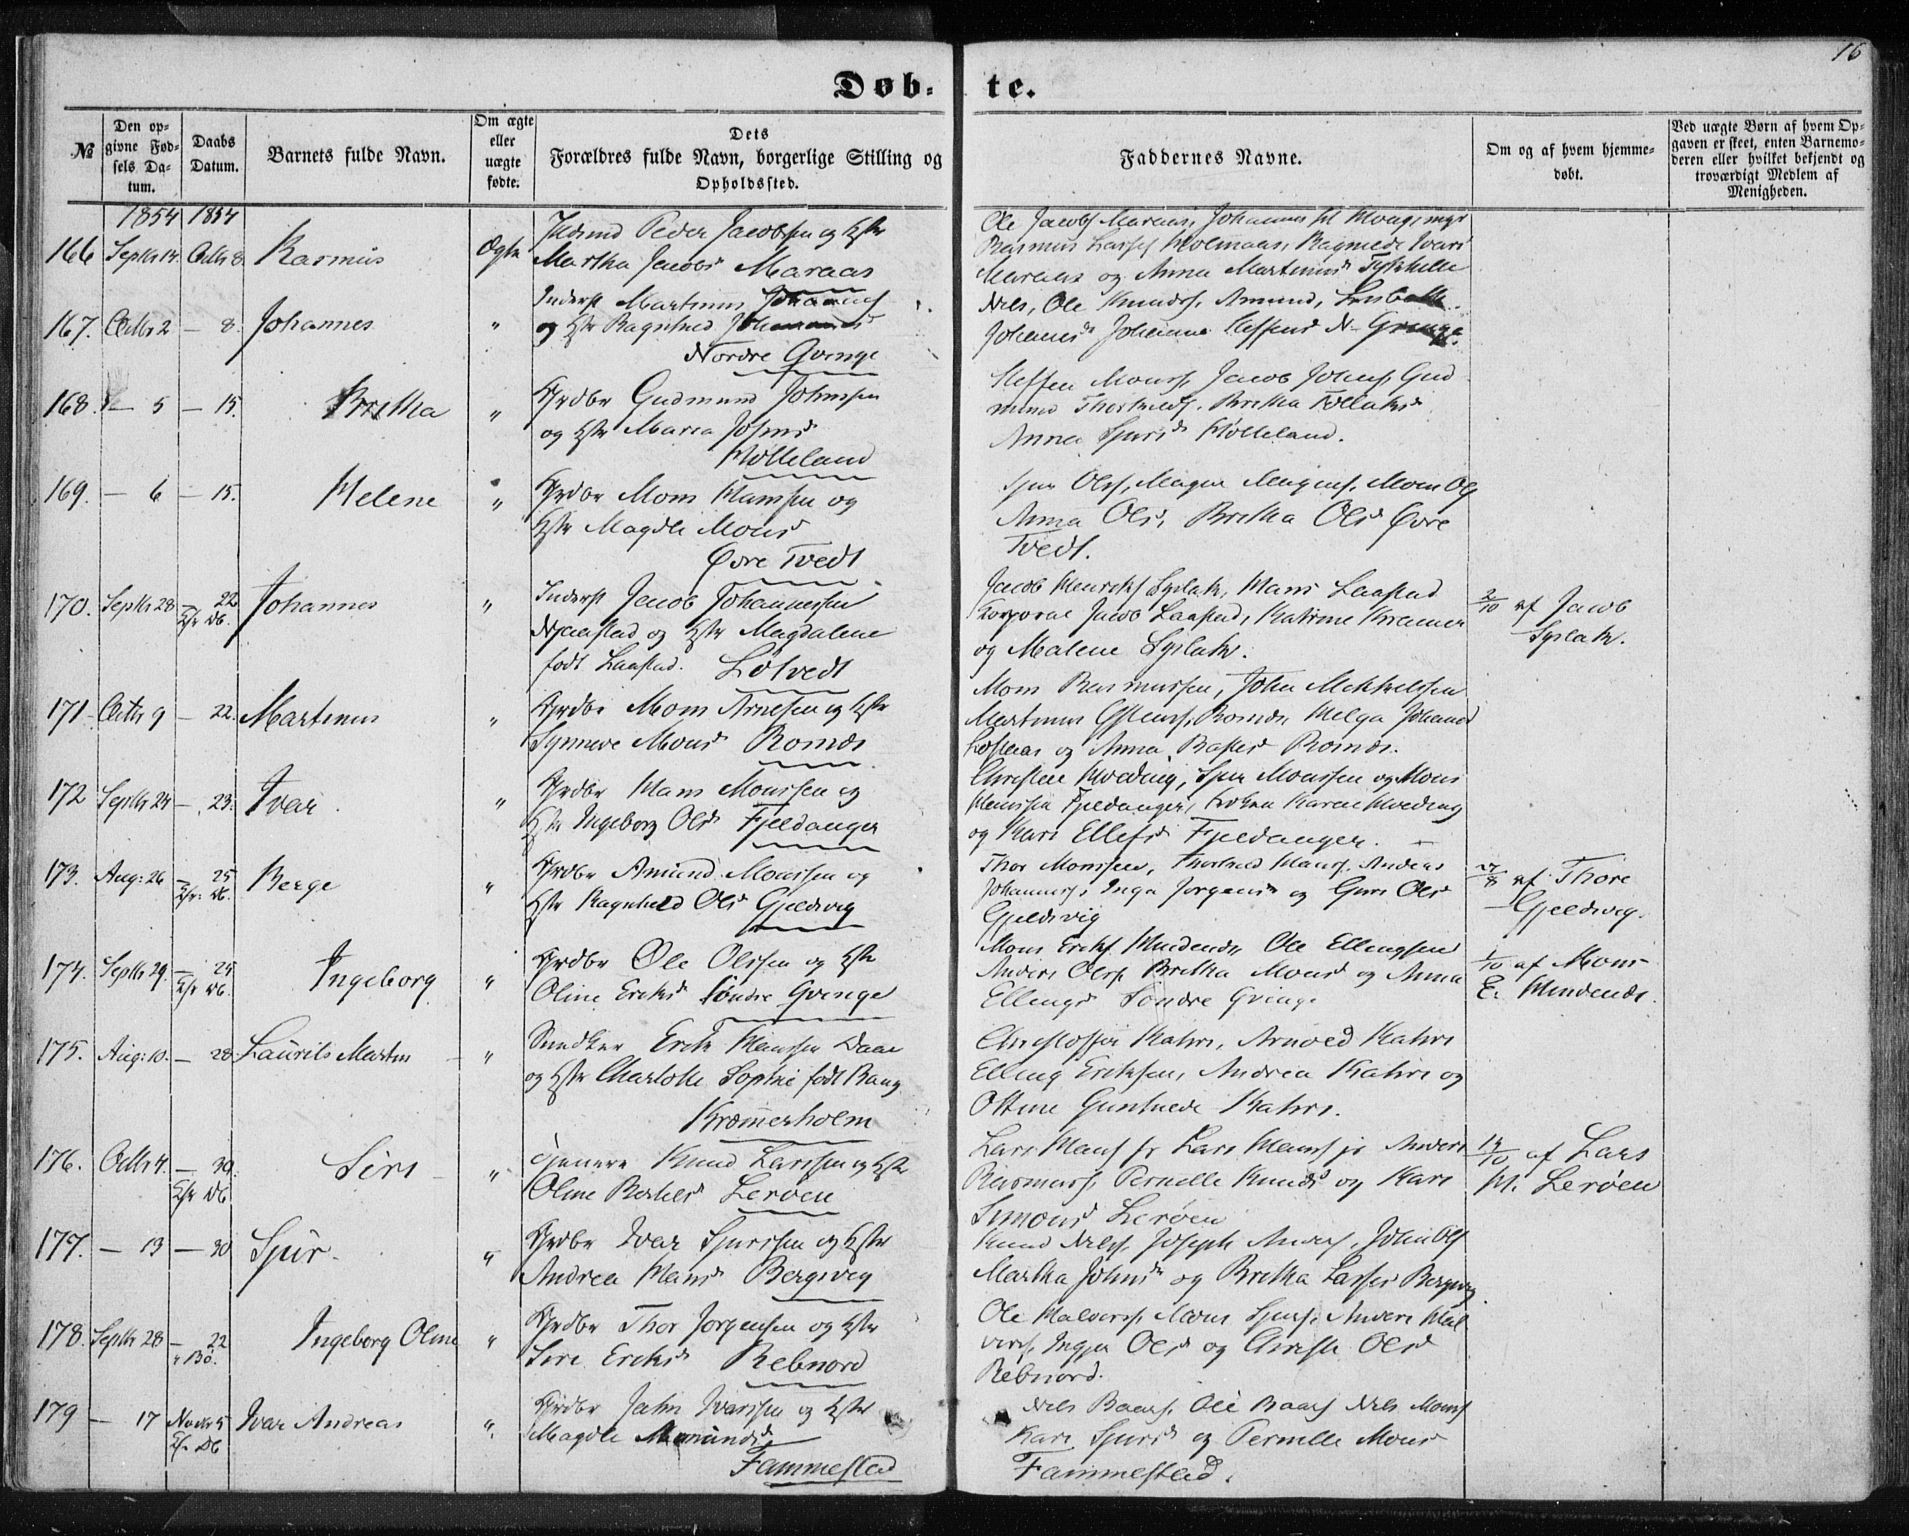 16
Døb-
te.
№
Den op-
givne Fød-
sels Da-
tum.
Daabs
Datum.
Barnets fulde Navn.
Om ægte
eller
uægte
fødte.
Dets
Forældres fulde Navn, borgerlige Stilling og
Opholdssted.
Faddernes Navne.
Om og af hvem hjemme-
døbt.
Ved uægte Børn af hvem Op-
gaven er skeet, enten Barnemo-
deren eller hvilket bekjendt og
troværdigt Medlem af
Menigheden.
1854 1854
166 Septbr 14. Octbr 8. Rasmus Ægte
Peder Jacobsen og Hstr
Martha Jacobsd Maraas
Ole Jacobs Maraas, Johannes
Rasmus Larss Holmaas, Ragnilde Ivars
Maraas og Anna Martinusd
167. Octbr 2 — 8. Johannes "
Inderst Martinus Johanness
og Hstr Ragnhild Johannesd
Nordre Gvinge
Nils, Ole Knudss, Amund,
Johannesd Johanne Steffensd N. Gvinge
168. — 5 — 15. Britha "
Grdbr Gudmund Johnssen
og Hstr Maria Johnsd
Hölleland
Steffen Monss, Jacob Johns, Gud
mund Thorkilds, Britha Tollaksd
Anna Sjursd Hölleland.
169. — 6 — 15. Helene "
Grdbr Mons Hanssen og
Hstr Magdli Monsd
Øvre Tvedt
Sjur Olss, Magne Magness, Mons Ols
Anna Olsd, Britha Olsd Øvre
Tvedt.
170. Septbr 28 — 22 Johannes "
Inderst Jacob Johannessen
Njaastad og Hstr Magdalene
født Laastad. Løtvedt
Jacob Henriks Syslak, Hans Laastad
Korporal Jacob Laastad, Katrine Kramer
og Malene Syslak.
2/10 af Jacob
Syslak.
171. Octbr 9 — 22. Martinus "
Grdbr Mons Arnesen og Hstr
Synneve Monsd Romås
Mons Rasmussen, John Mikkelssen
Martinus Romås, Helga Johannesd
og Anna Romås.
172 Septbr 24 — 23. Ivar. "
Grdbr Hans Monssen og
Hstr Ingeborg Olsd Fjeldanger
Christen Hveding, Sjur Monssen og Mons
Hanssen Fjeldanger, Frøken Karen Hveding
og Kari Ellefsd Fjeldanger. —
173. Aug: 26 — 25 Berge "
Grdbr Amund Monssen og
Hstr Ragnhild Olsd Gjeldsvig
Thor Monssen, Hanss, Anders
Johanness, Inga Jørgensd og Guri Olsd
Gjeldsvig
27/8 af Thore
Gjeldsvig.
174. Septbr 29. — 25 Ingeborg "
Grdbr Ole Olssen og Hstr
Oline Eriksd Söndre Gvinge
Mons Eriks Hindenes, Ole Ellingsen
Anders Olss, Britha Monsd og Anna
Ellingsd Söndre Gvinge
1/10 af Mons
E. Hindenes.
175. Aug: 10. — 28. Laurits Martin "
Snedker Erik Hanssen Daae
og Hstr Charlotte Sophie født Bang
Kræmerholm
Christoffer Kahrs, Arnold Kahrs
Elling Eriksen, Andrea Kahrs og
Ottine Guntvede Kahrs.
176. Octbr 4. — 30 Siri "
Knud Larssen og Hstr
Oline Berhesd Lerøen
Lars Hanss sr Lars Hanss jr Anders
Rasmuss, Pernille Knudsd og Kari
Simonsd Lerøen
14/10 af Lars
H. Lerøen
177. — 13 — 30 Sjur "
Grdbr Ivar Sjurssen og Hstr
Andrea Hansd Bergsvig
Knud Nilss, Joseph Anders, John Ols
Martha Johnsd og Britha Larsd Bergsvig
178. Septbr 28 — 22 Ingeborg Oline "
Grdbr Thor Jörgensen og Hstr
Siri Eriksd Rebnord
Ole Halvors, Mons Sjurs, Anders Hal
vors, Ingja Olsd og Christi Olsd
Rebnord.
179 — 17 Novbr 5 Ivar Andreas "
Grdbr John Ivarssen og Hstr
Magdli Amundsd
Fammestad
Nils Baars, Ole Baars Nils Monss
Kari Sjursd og Pernille Monsd
Fammestad.